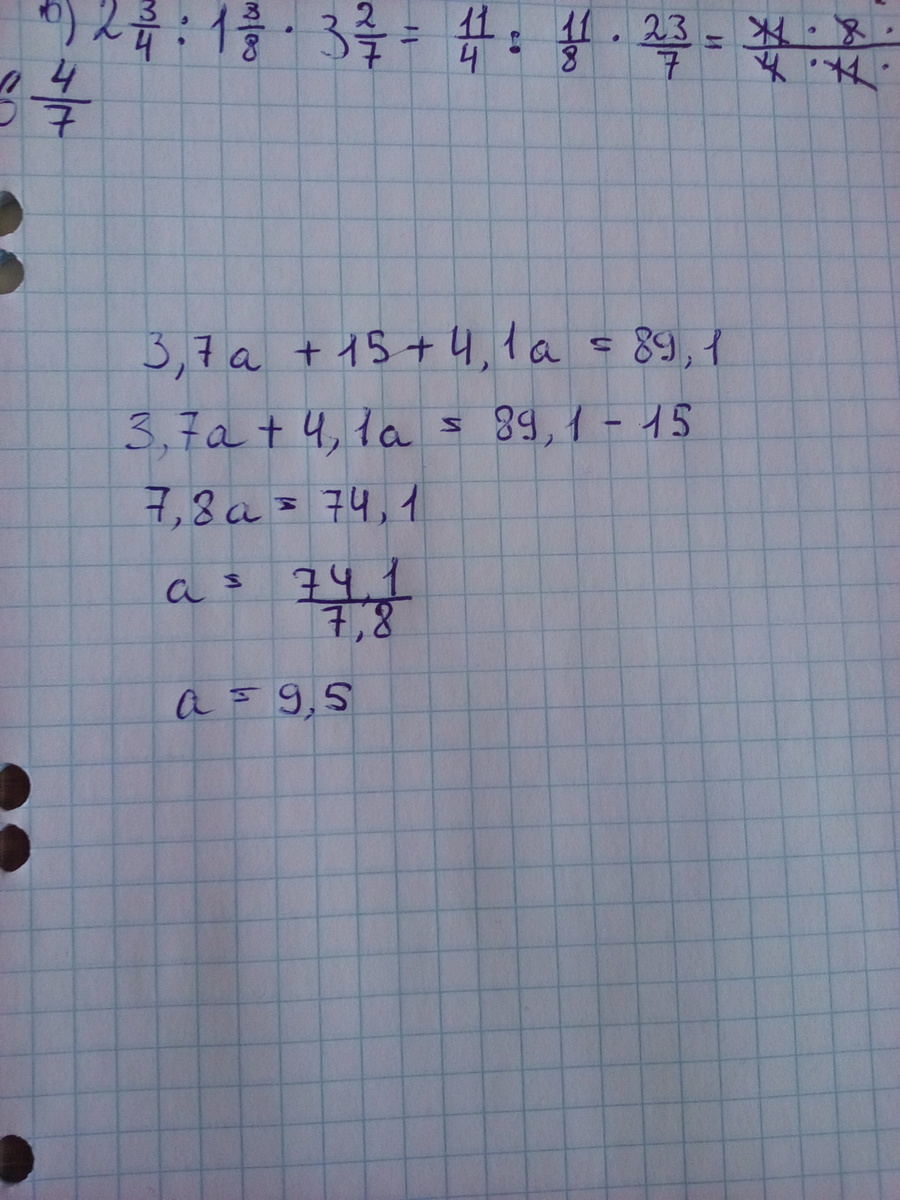 в) 2 3/4 : 1 3/8 · 3 2/7 = 11/4 : 11/8 · 23/7 = 11 · 8 ·/4 · 11 ·
6 4/7
3,7a + 15 + 4,1a = 89,1
3,7a + 4,1a = 89,1 - 15
7,8a = 74,1
a = 74,1/7,8
a = 9,5